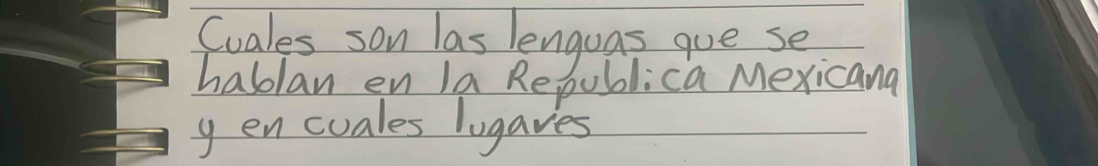 Cuales son las lenguas que se
hablan en la Republica Mexicana
y en cuales lugares